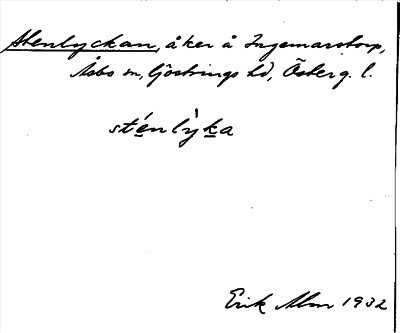 Stenlyckan, åker å Ingemarstorp,
Åsbo sn, Göstrings hd, Österg. l.
sténlỳka
Erik Alm 1932